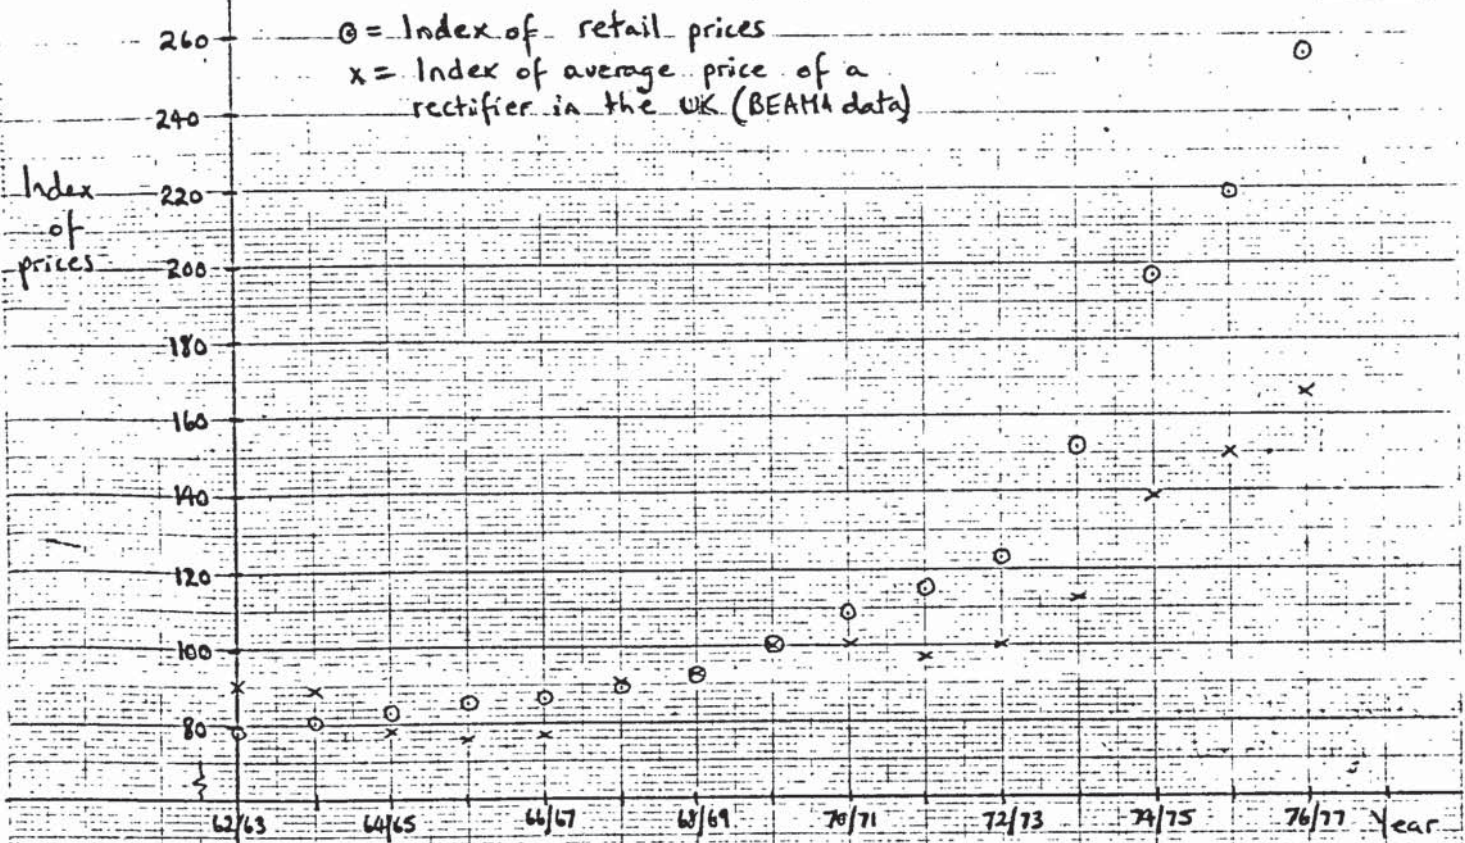 ⊙ = Index of retail prices
x = Index of average price of a
rectifier in the UK (BEAMA data)
260
240
Index
of
prices
220
200
180
160
140
120
100
80
62/63 64/65 66/67 68/69 70/71 72/73 74/75 76/77 Year